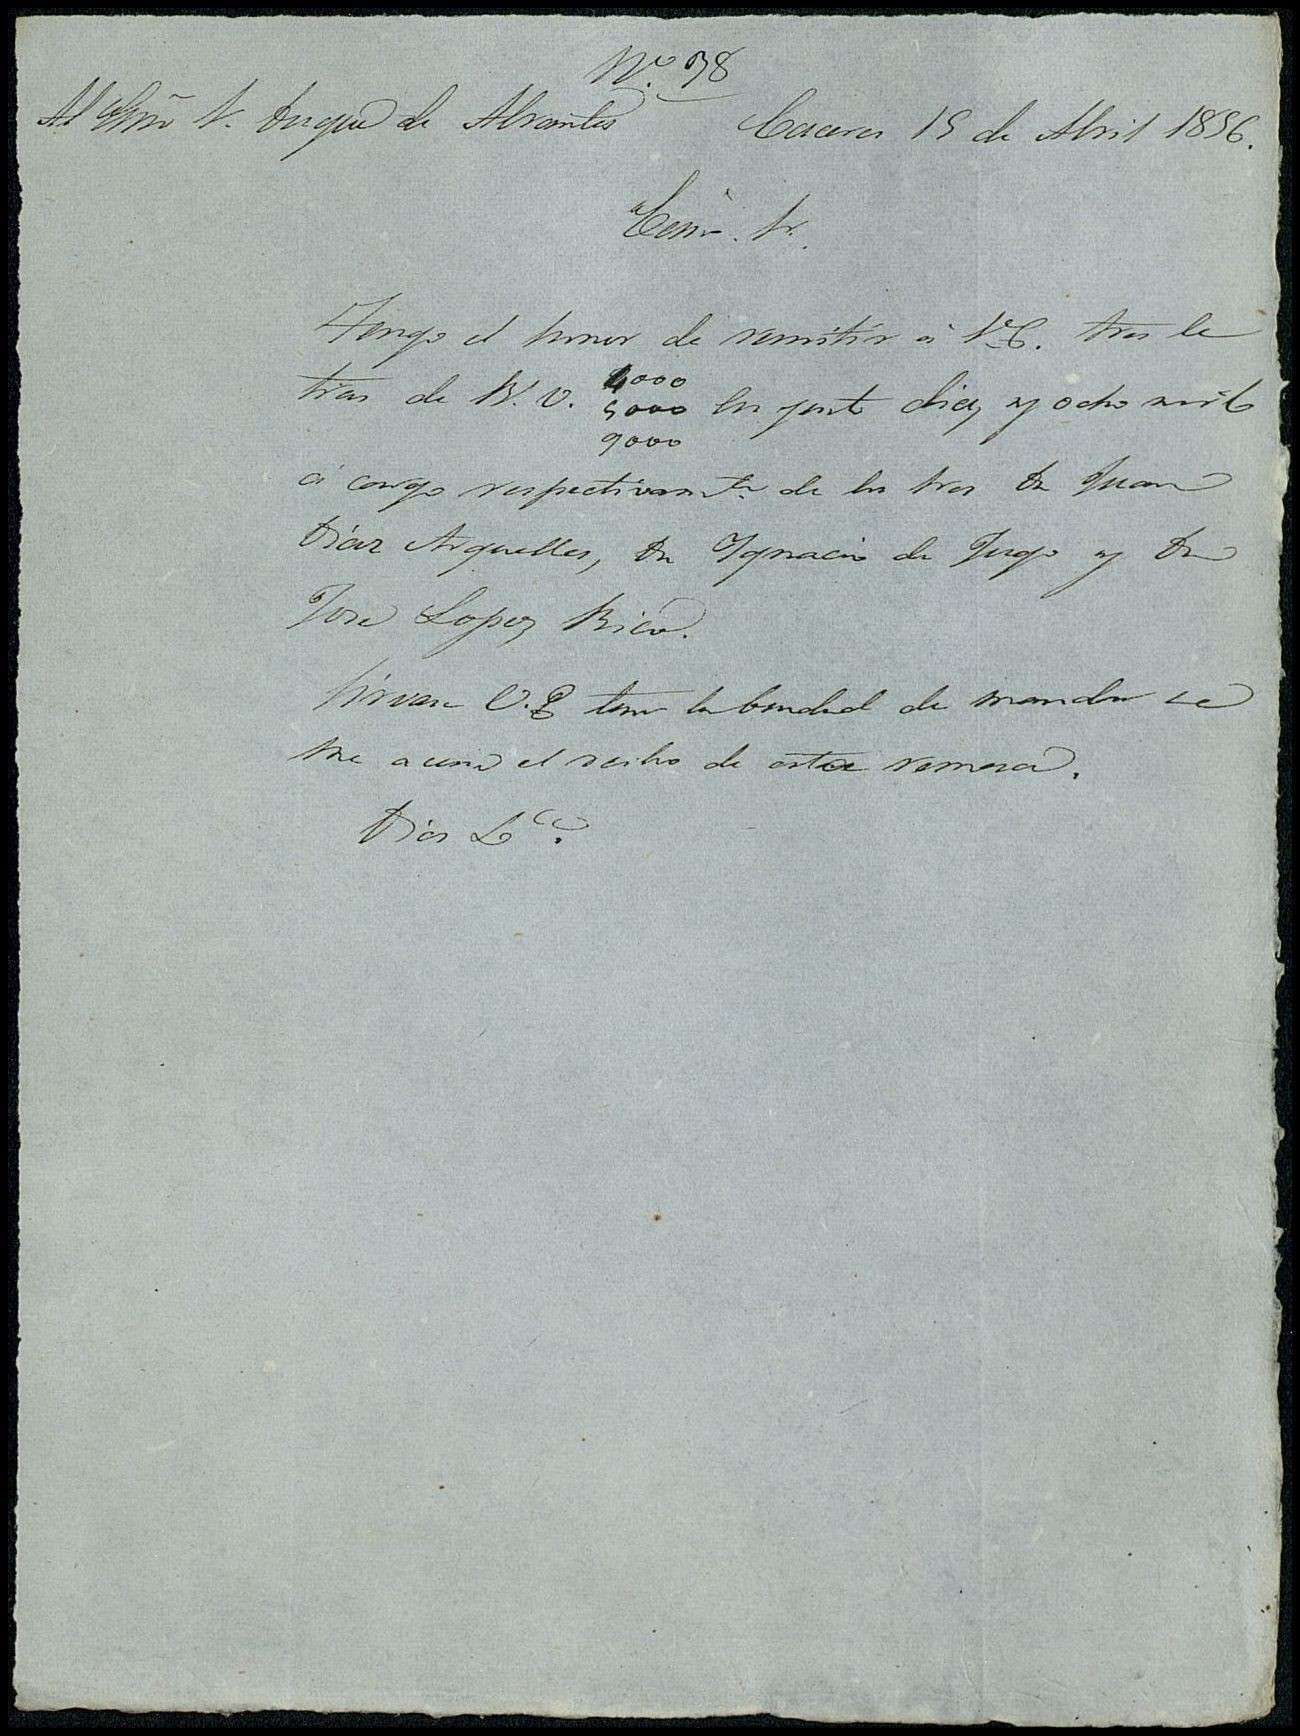 Nº 38
Al Exmo Sr. Duque de Abrantes Caceres 15 de Abril 1856.
Exmo. Sr.
Tengo el honor de remitir á V.E. tres le
tras de R. V. 4000
5000 en junto diez y ocho mil
9000
á cargo respectivamte. de los tres Dn Juan
Diaz Arguelles, Dn Ignacio de Jugo y Dn
Jose Lopez Rico.
Sirvase V.E tener la bondad de mandar se
me acuse el recibo de esta remesa.
Dios &cc.